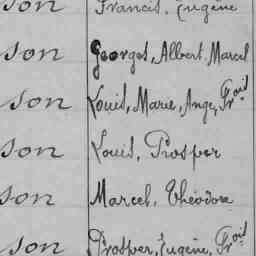 son Francis, Eugène
son Georges, Albert, Marcel
son Louis, Marie, Ange, Frois
son Louis, Prosper
son Marcel, Théodore
son Prosper, Eugène, Frois